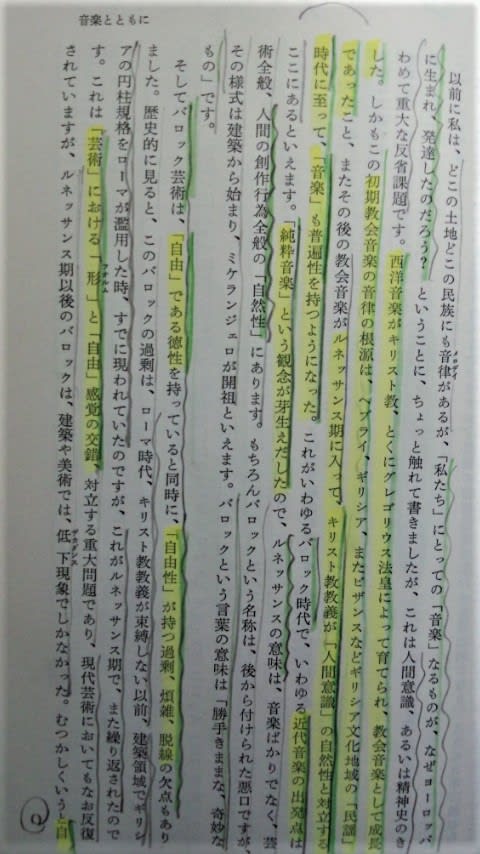 音楽とともに
以前に私は、どこの土地どこの民族にも音律があるが、「私たち」にとっての「音楽」なるものが、なぜヨーロッパ
メロディ
に生まれ、発達したのだろう? ということに、ちょっと触れて書きましたが、これは人間意識、あるいは精神史のき
わめて重大な反省課題です。西洋音楽がキリスト教、とくにグレゴリウス法皇によって育てられ、教会音楽として成長
した。しかもこの初期教会音楽の音律の根源は、ヘブライ、ギリシア、またビザンスなどギリシア文化地域の「民謡」
であったこと、またその後の教会音楽がルネッサンス期に入って、キリスト教教義が「人間意識」の自然性と対立する
時代に至って、「音楽」も普遍性を持つようになった。これがいわゆるバロック時代で、いわゆる近代音楽の出発点は
ここにあるといえます。「純粋音楽」という観念が芽生えだしたので、ルネッサンスの意味は、音楽ばかりでなく、芸
術全般、人間の創作行為全般の「自然性」にあります。もちろんバロックという名称は、後から付けられた悪口ですが、
その様式は建築から始まり、ミケランジェロが開祖といえます。バロックという言葉の意味は「勝手きままな、奇妙な
もの」です。
そしてバロック芸術は、「自由」である徳性を持っていると同時に、「自由性」が持つ過剰、煩雑、脱線の欠点もあり
ました。歴史的に見ると、このバロックの過剰は、ローマ時代、キリスト教教義が束縛しない以前、建築領域でギリシ
アの円柱規格をローマが濫用した時、すでに現われていたのですが、これがルネッサンス期で、また繰り返されたので
す。これは「芸術」における「形」と「自由」感覚の交錯、対立する重大問題であり、現代芸術においてもなお反復
フォルム
されていますが、ルネッサンス期以後のバロックは、建築や美術では、低下現象でしかなかった。むつかしくいうと自
デカダンス